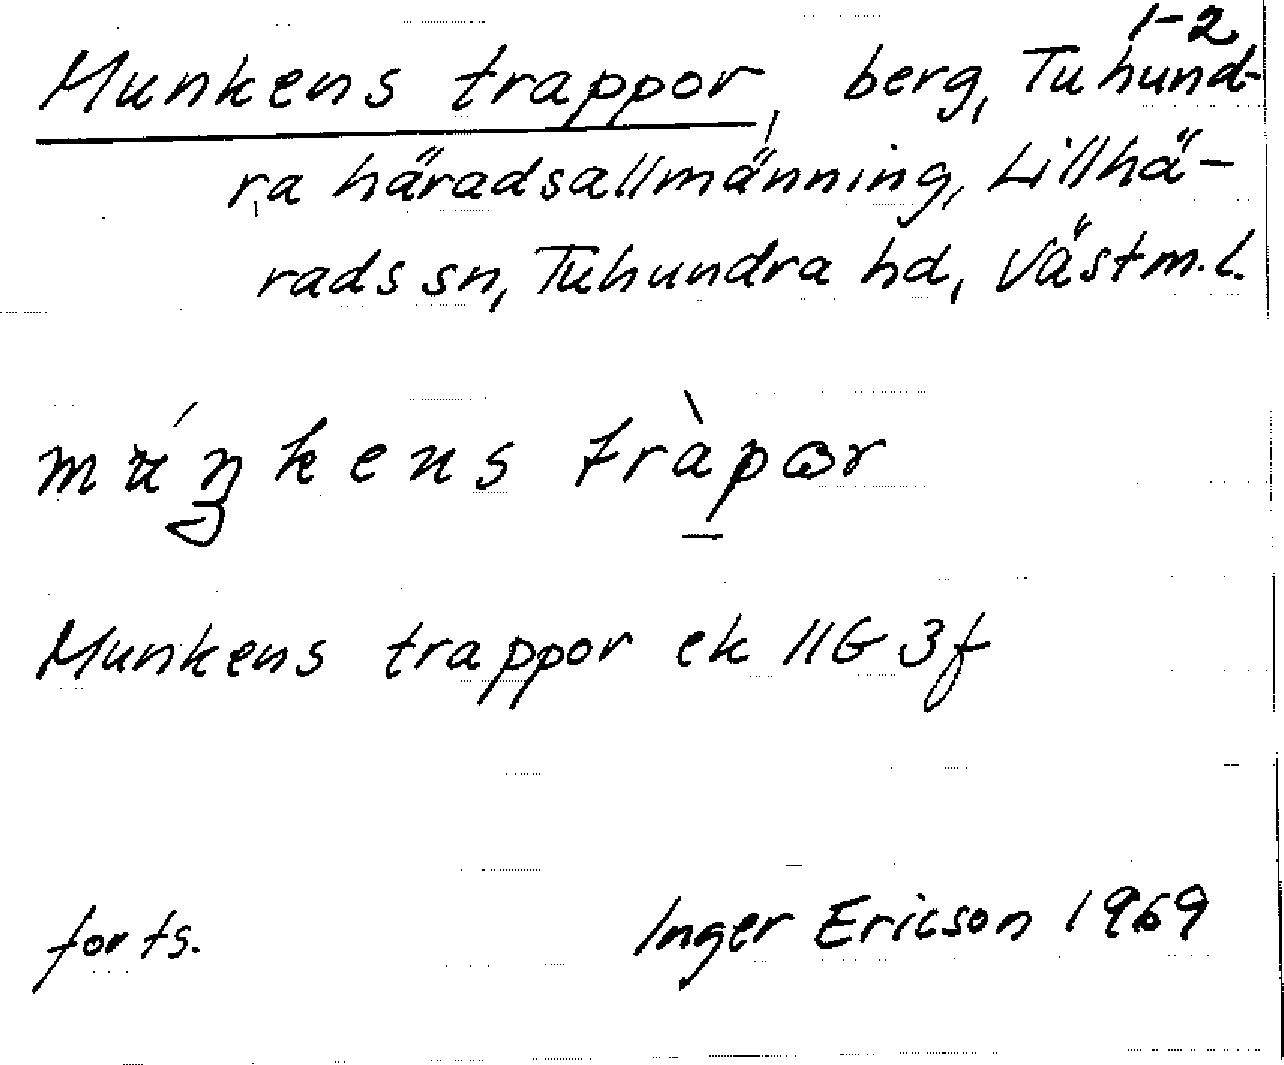 1-2
Munkens trappor, berg, Tuhund-
ra häradsallmänning, Lillhä-
rads sn, Tuhundra hd, Västm.l.
Munkens trappor ek 11G 3f
forts. Inger Ericson 1969